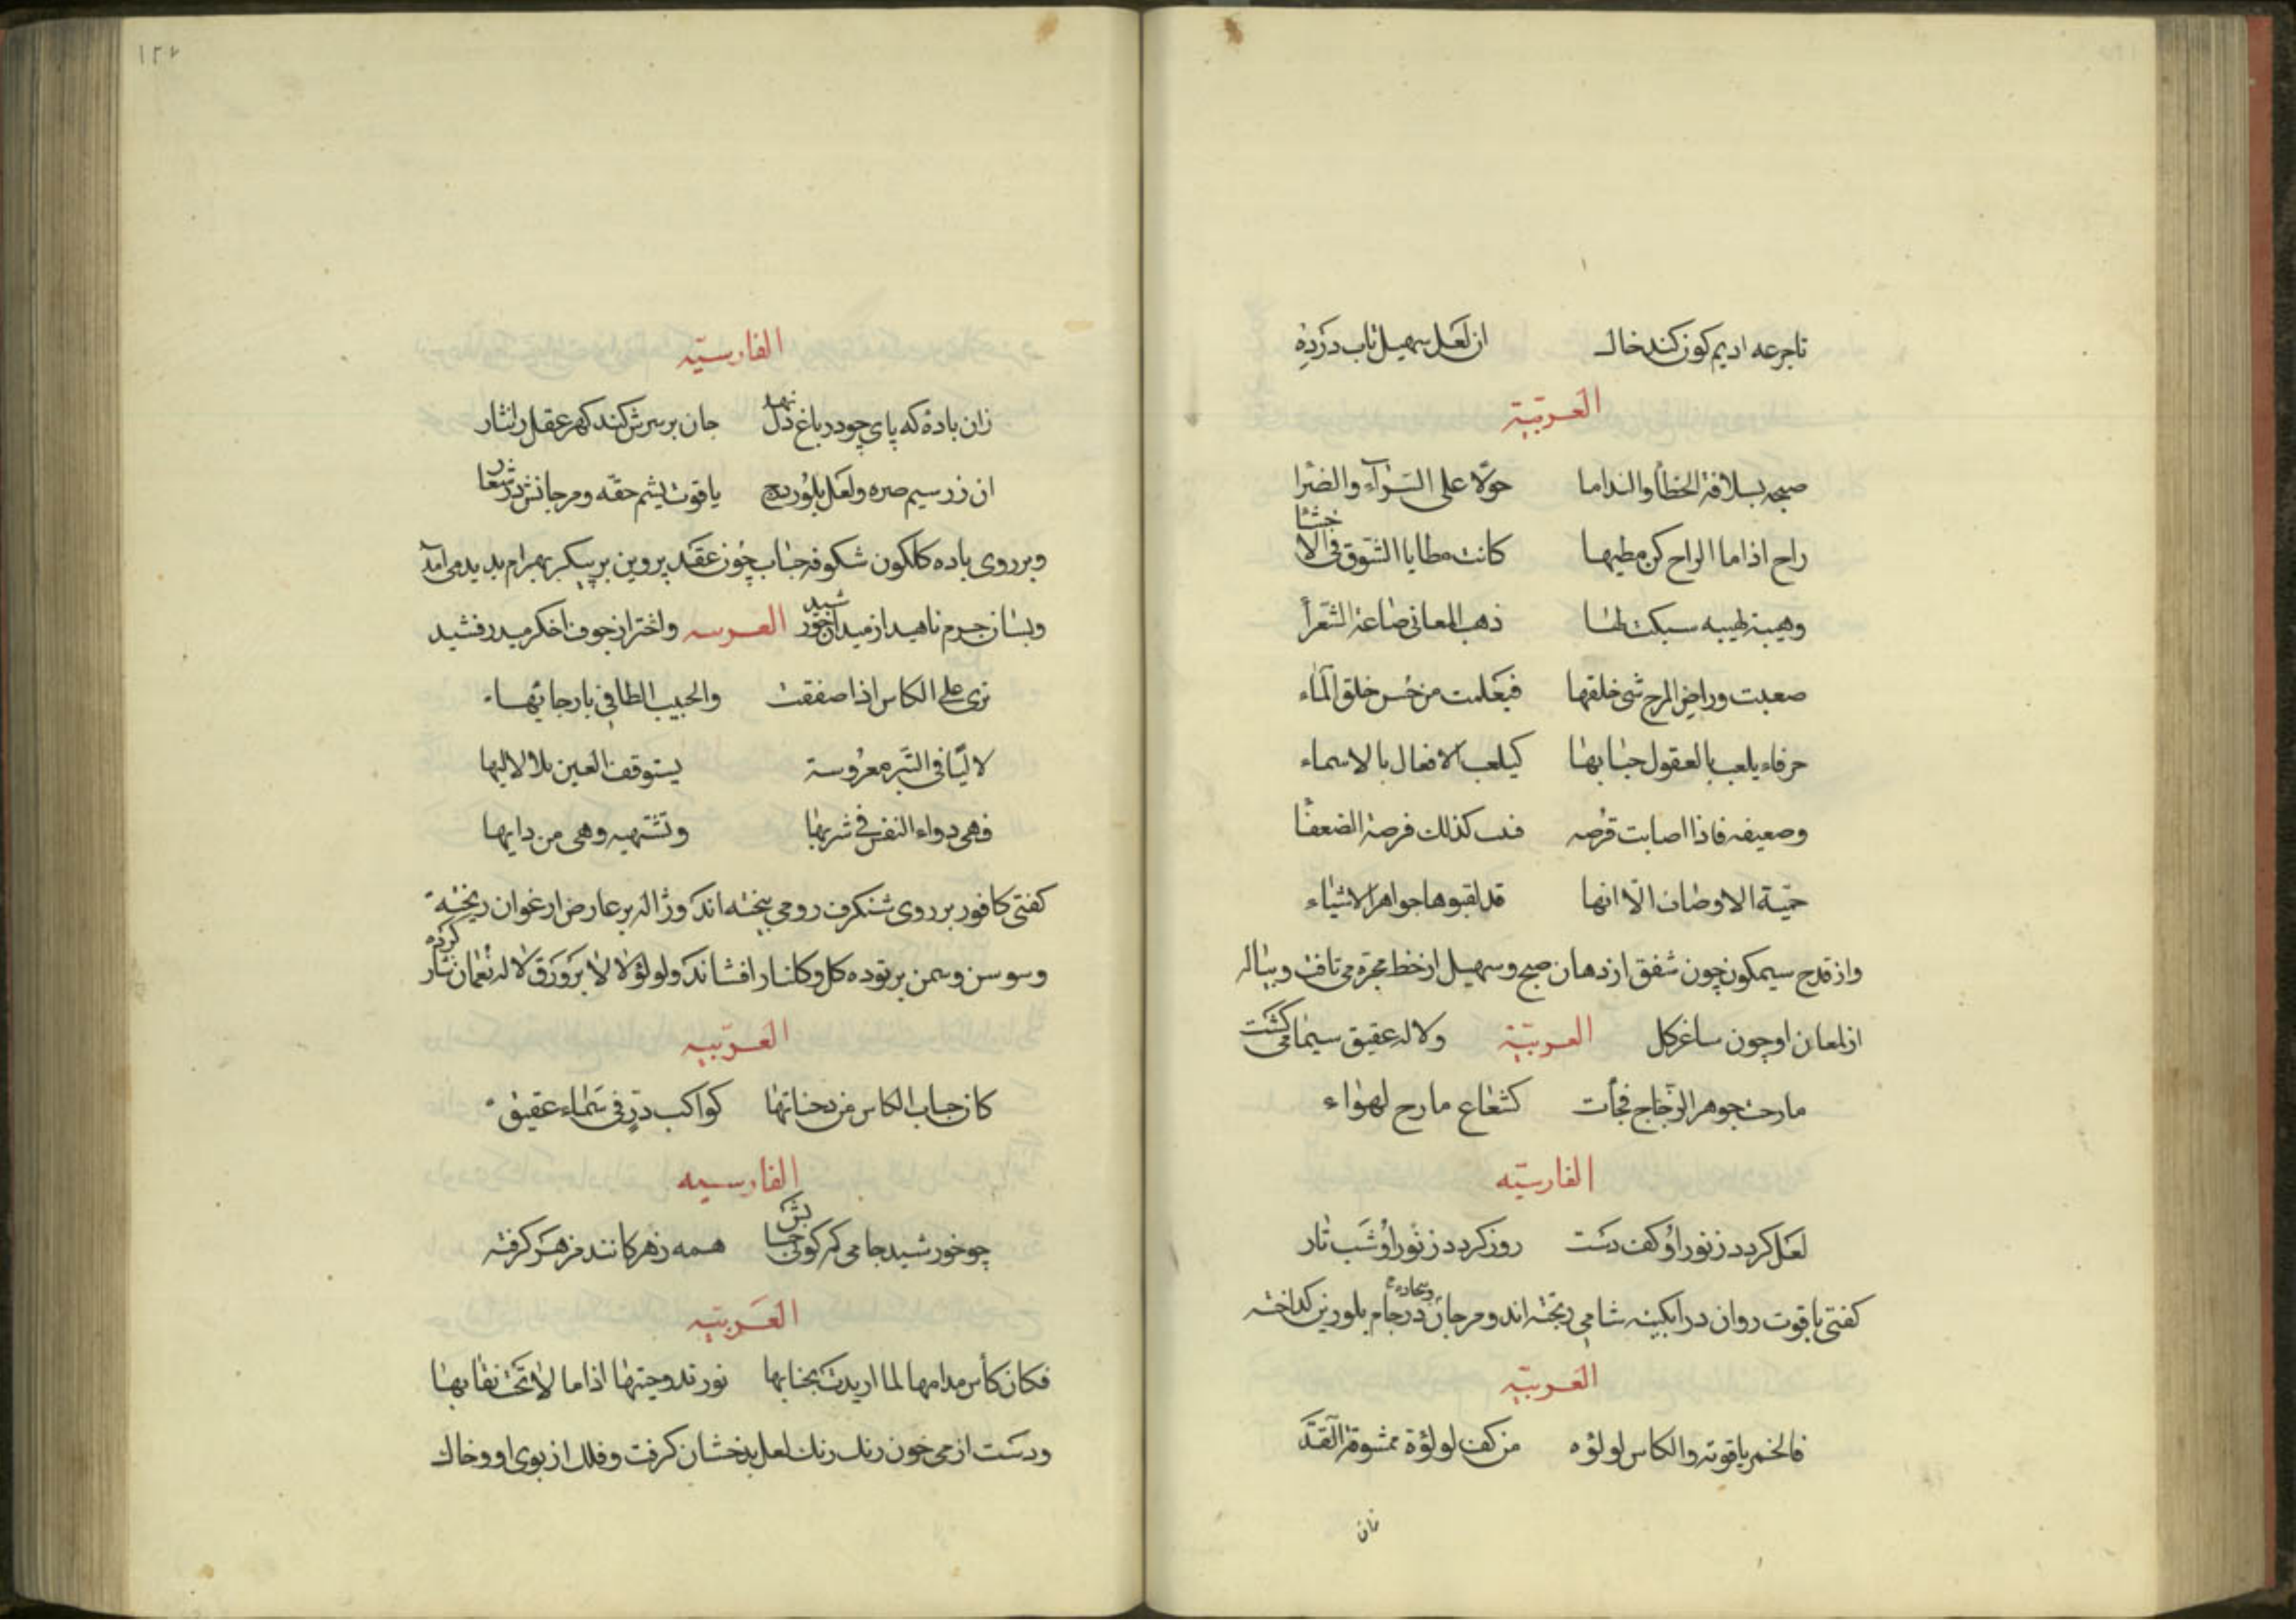 تاجرعه اديم كون كند خاك از لعل سهيل تاب در ده
العربيّة
صبحه بسلافة الخطأ والنداما حولا على السّراء والضرا
راح اذا ما الراح كن مطيها كانت مطايا الشوق فى الاحشا
سبكت لها ذهب المعانى صاغة الشعرا
صعبت وراض المزج سئ خلقها فتعلمت من حسن خلق الماء
خرقاء يلعب بالعقول حبابها كيلعب الافعال بالاسماء
وضعيفه فاذا اصابت فرصه كذلك فرصة الضعفا
الاوصاف الّا انها قد لقبوها جواهر الاشياء
واز قدح سيمكون چون شفق از دهان صبح وسهيل از خط مجرّه مى تافت وپياله
از لمعان او چون ساغر كل العربيّة ولاله عقيق سيما مى كشت
جوهر الزجاج فجأت كشعاع مازج لهواء
الفارسيّه
لعل كردد ز نور او كف دست روز كردد ز نور او شب تار
كفتى ياقوت روان در ابكينه شامى ريخته اند ومرجان در جام بلورين كداخته
العربيّة
فالخمر ياقوته والكاس لولؤه من كف لولؤة ممشوقة القدّ
١٢٧
الفارسيّه
زان بادهٔ كه پاى چو در باغ دل نهد جان بر سرش كند كهر عقل را نثار
ان زر سيم صره ولعل بلور درج ياقوت يشم حقه ومرجانش در شعار
وبر روى باده كلكون شكوفه حباب چون عقد پروين بر پيكر بهرام پديد مى امد
وبسان جرم ناهيد از ميدان خورشيد العربيه واختر از جوف اخكر ميدرفشيد
ترى على الكاس اذا صفقت والحبب الطافى بارجائها
لاليا فى التبر مغروسة يستوقف العين بلالاليها
فهى دواء النفس فى شربها وتشتهيه وهى من دايها
كفتى كافور بر روى شنكرف رومى بيخته اند وژاله بر عارض ارغوان ريخته
وسوسن وسمن بر توده كل وكلنار افشاند ولولؤ لالا بر ورق لاله نعمان نثار كرده
العربيّه
كان حباب الكاس من كواكب درّ فى سماء عقيق
الفارسيه
چو خورشيد جامى كه كوئى حبابش همه زهر كانند مزهر كرفته
العربيّه
فكان كأس مدامها لما ارتدت بحبابها وجنتها اذا ما لاح تحت نقابها
ودست از مى خون رنك رنك لعل بدخشان كرفت وفلك از بوى او وخاك